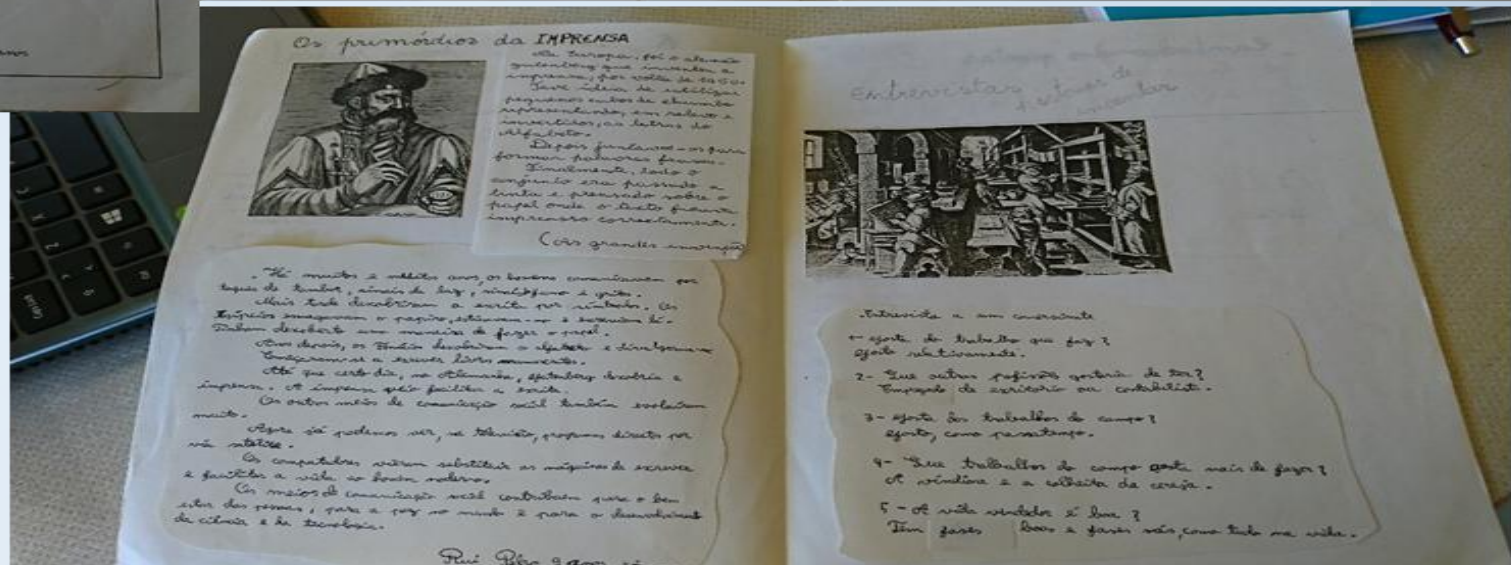 Os primórdios da IMPRENSA
Na Europa, foi o alemão
gutenberg que inventou a
imprensa, por volta de 1450.
Teve ideia de utilizar
pequenos cubos de chumbo
representando, em relevo e
invertidos, as letras do
Alfabeto.
Depois juntavam-os para
formar palavras frases.
Finalmente, todo o
conjunto era passado a
tinta e prensado sobre o
papel onde o texto ficava
impresso correctamente.
(as grandes invenções
. Há muitos e muitos anos, os homens comunicavam por
toques de tambor, sinais de luz, sinal fumo e gritos.
Mais tarde descobriram a escrita por símbolos. Os
Egípcios o papiro, e escreviam lá.
Tinham descoberto uma maneira de fazer o papel.
Anos depois, os Fenícios descobriram o alfabeto e
Começaram-se a escrever livros manuscritos.
Até que certo dia, na Alemanha, gutenberg descobriu a
imprensa. A imprensa veio facilitar a escrita
Os outros meios de comunicação social também evoluíram
muito.
Agora já podemos ver, na televisão, programas directos por
via satélite.
Os computadores vieram substituir as máquinas de escrever
e facilitar a vida ao homem moderno.
Os meios de comunicação social contribuem para o bem
estar das pessoas, para a paz no mundo e para o desenvolvimento
da ciência e da tecnologia.
Rui Pedro 9 anos
Entrevistas
pessoas de
encantar
Entrevista a um comerciante
1- gosta do trabalho que faz?
gosto relativamente.
2- Que outras profissões gostaria de ter?
Empregado de escritório ou contabilista.
3- gosta dos trabalhos do campo?
gosto, como passatempo.
4- Que trabalhos do campo gosta mais de fazer?
A vindima e a colheita da cereja.
5- A vida vendedor é boa?
Tem fases boas e fases más, como tudo na vida.